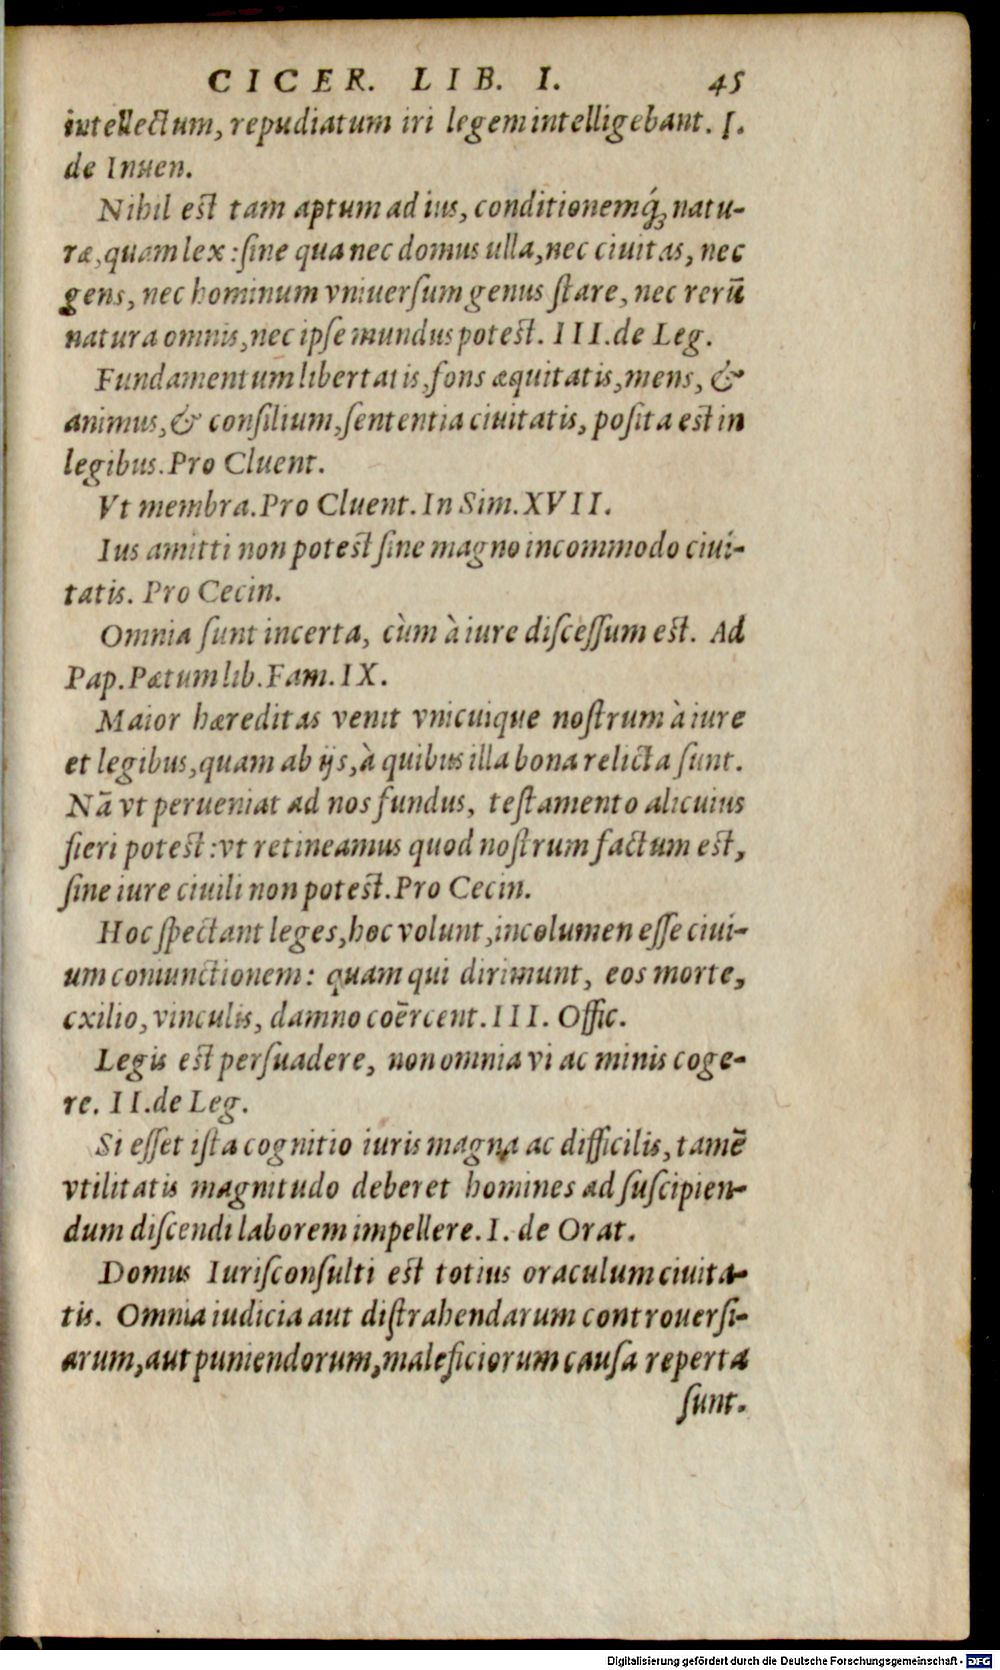 CICER. LIB. I. 45
intellectum, repudiatum iri legem intelligebant. I.
de Inuen.
Nihil est tam aptum ad ius, conditionemq́; natu-
ræ, quam lex: sine qua nec domus ulla, nec ciuitas, nec
gens, nec hominum vniuersum genus stare, nec rerū
natura omnis, nec ipse mundus potest. III. de Leg.
Fundamentum libertatis, fons æquitatis, mens, &
animus, & consilium, sententia ciuitatis, posita est in
legibus. Pro Cluent.
Vt membra. Pro Cluent. In Sim. XVII.
Ius amitti non potest sine magno incommodo ciui-
tatis. Pro Cecin.
Omnia sunt incerta, cùm à iure discessum est. Ad
Pap. Pætum lib. Fam. IX.
Maior hæreditas venit vnicuique nostrum à iure
et legibus, quam ab ijs, à quibus illa bona relicta sunt.
Nã vt perueniat ad nos fundus, testamento alicuius
fieri potest: vt retineamus quod nostrum factum est,
sine iure ciuili non potest. Pro Cecin.
Hoc spectant leges, hoc volunt, incolumen esse ciui-
um coniunctionem: quam qui dirimunt, eos morte,
exilio, vinculis, damno coẽrcent. III. Offic.
Legis est persuadere, non omnia vi ac minis coge-
re. II. de Leg.
Si esset ista cognitio iuris magna ac difficilis, tamẽ
vtilitatis magnitudo deberet homines ad suscipien-
dum discendi laborem impellere. I. de Orat.
Domus Iurisconsulti est totius oraculum ciuita-
tis. Omnia iudicia aut distrahendarum controuersi-
arum, aut puniendorum, maleficiorum causa reperta
sunt.
Digitalisierung gefördert durch die Deutsche Forschungsgemeinschaft - DFG